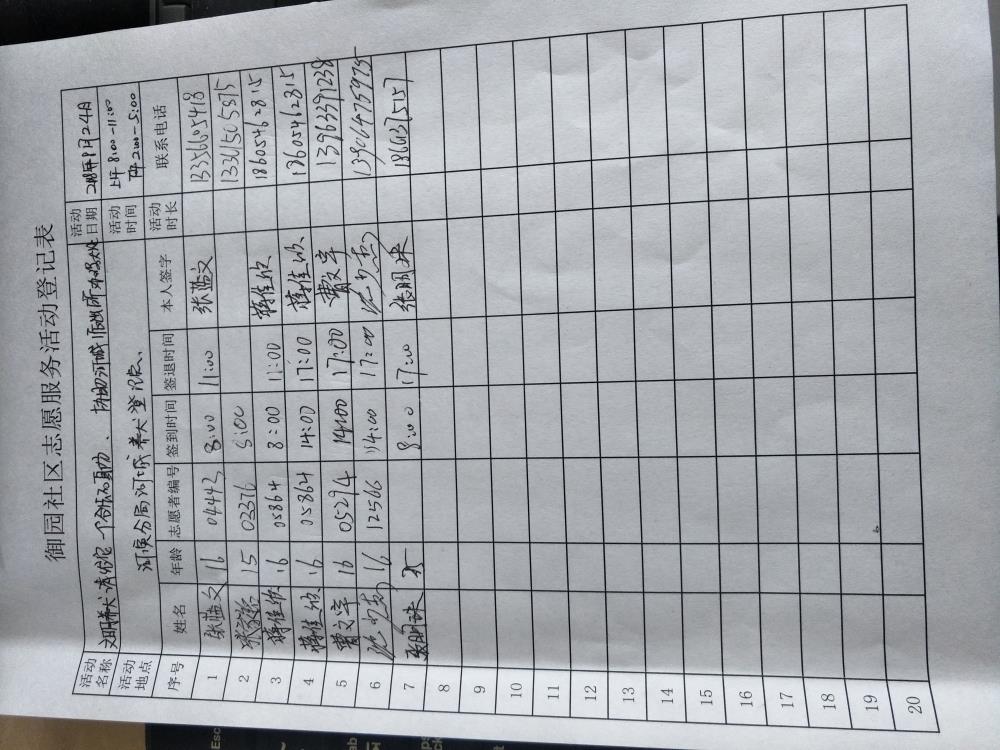 御园社区志愿服务活动登记表
活动名称 文明养犬 活动日期 2018年1月24日
活动地点 河滨分局河城养犬登记点 活动时间 上午 8:00-11:00
2:00-5:00
序号 姓名 年龄 志愿者编号 签到时间 签退时间 本人签字 活动时长 联系电话
1 张益文 16 04443 8:00 11:00 张益文 13356605418
2 15 02376 8:00 13361505875
3 蒋佳欣 16 05864 8:00 11:00 蒋佳欣 18605462815
4 蒋佳欣 16 05864 14:00 17:00 蒋佳欣 18605462815
5 曹文宇 16 05294 14:00 17:00 曹文宇 13963391238
6 16 12566 14:00 17:00 13906475975
7 张明珠 8:00 17:00 张明珠
8
9
10
11
12
13
14
15
16
17
18
19
20
Esc